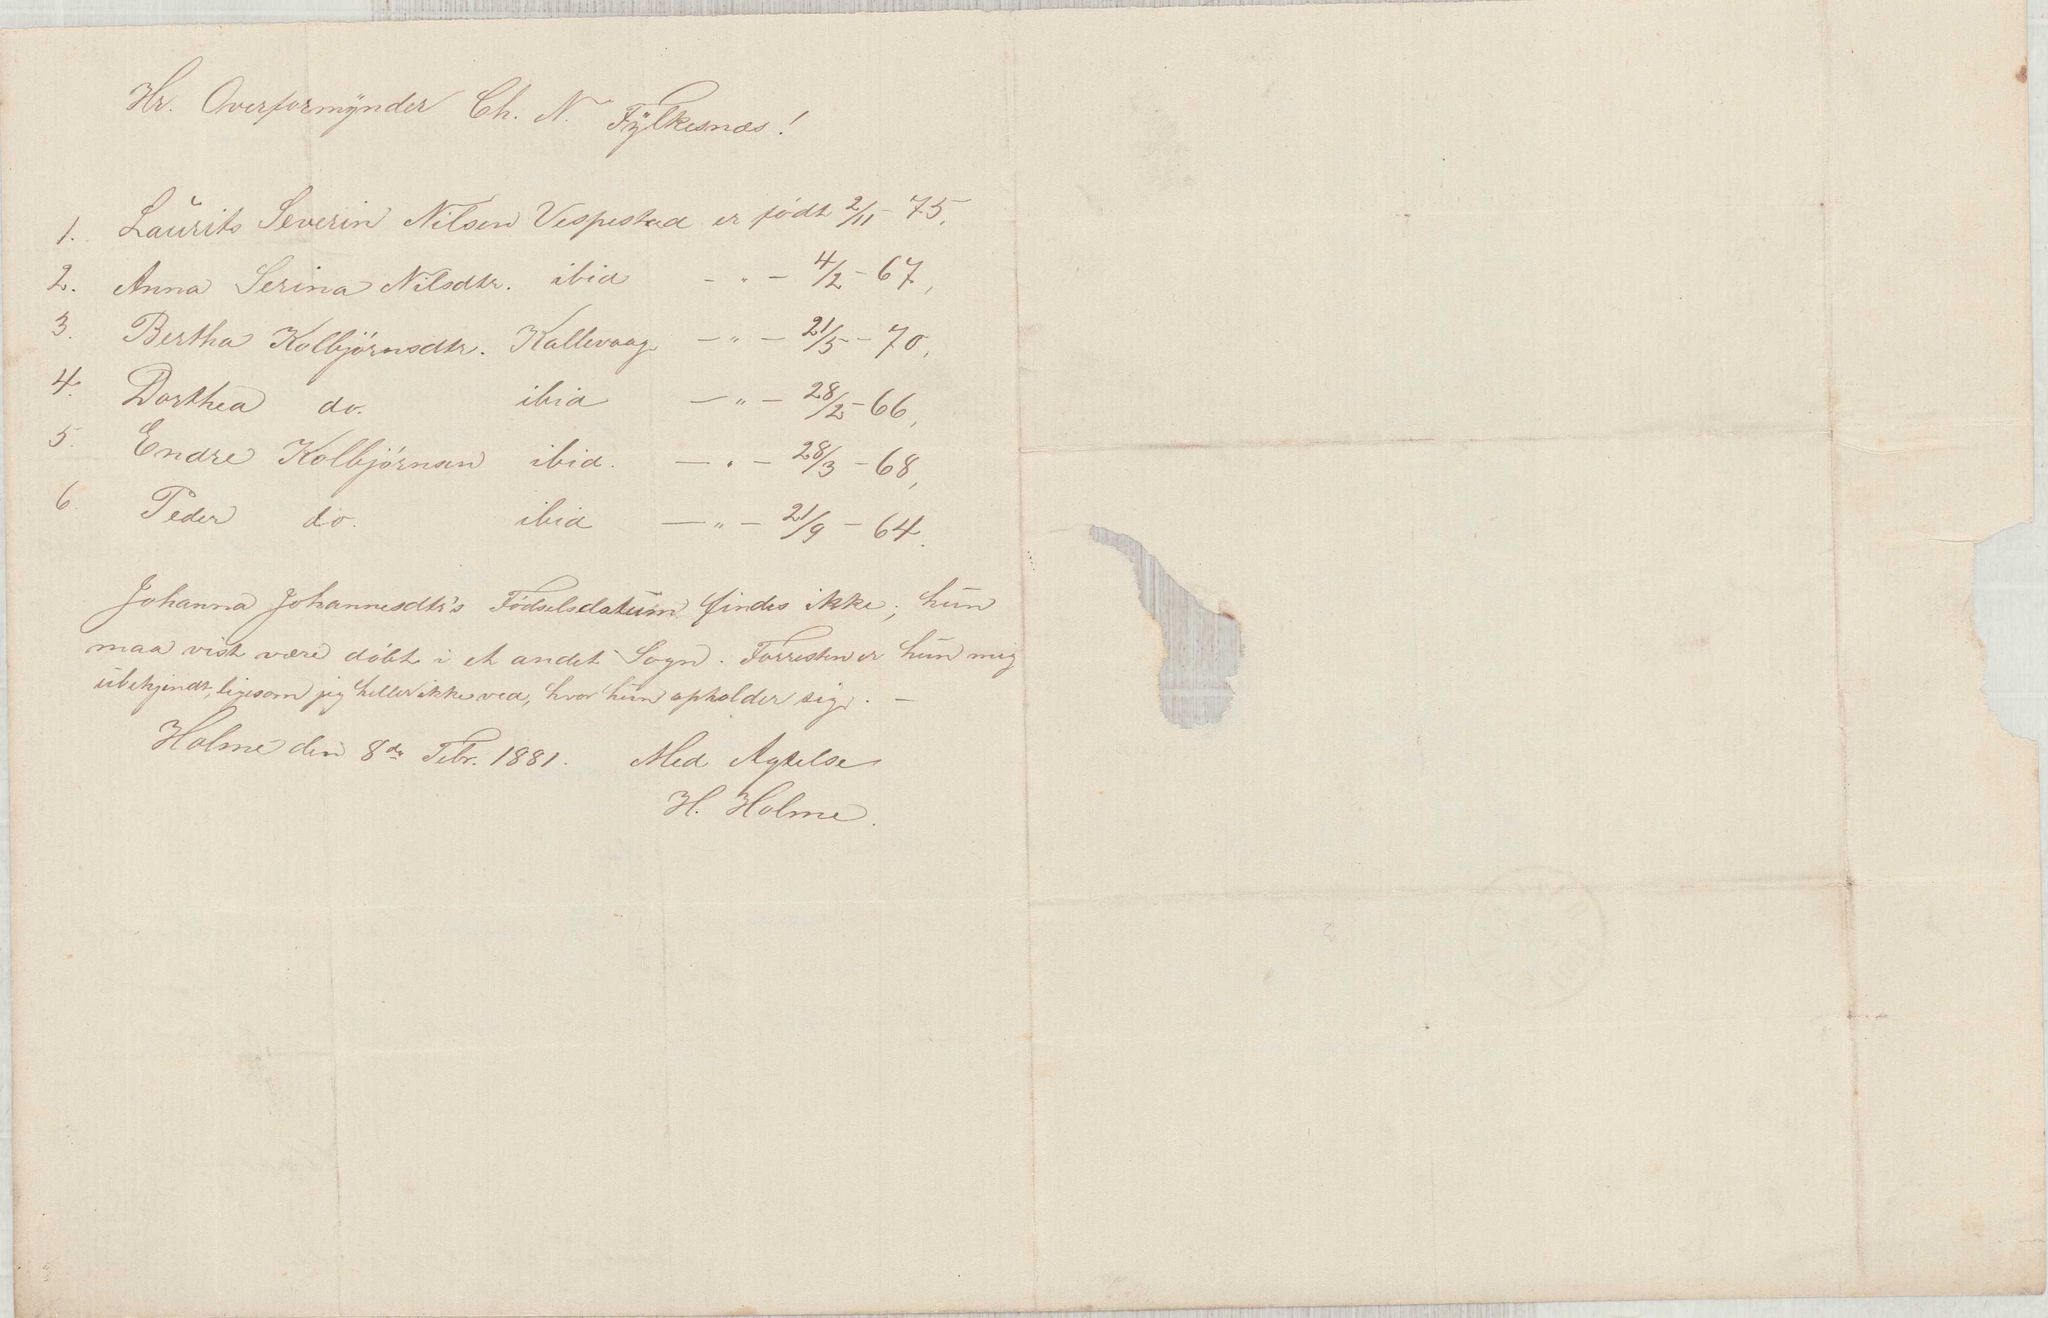 Hr. Overformynder Ch. N. Fylkesnæs!
1. Laurits Severin Nilsen Vespestad er født 2/11 - 75,
2. Anna Serina Nilsdtr. ibid - " - 4/2 - 67,
3. Bertha Kolbjørnsdtr. Kallevaag - " - 21/5 - 70,
4. Dorthea do. ibid - " - 28/2 - 66,
5. Endre Kolbjørnsen ibid. - " - 28/3 - 68,
6. Peder do. ibid - " - 21/9 - 64.
Johanna Johannesdtr's Fødselsdatum findes ikke; hun
maa vist være døbt i et andet Sogn. Forresten er hun mig
ubekjendt, ligesom jeg heller ikke ved, hvor hun opholder sig. -
Holme den 8de Febr. 1881. Med Agtelse
H. Holme.